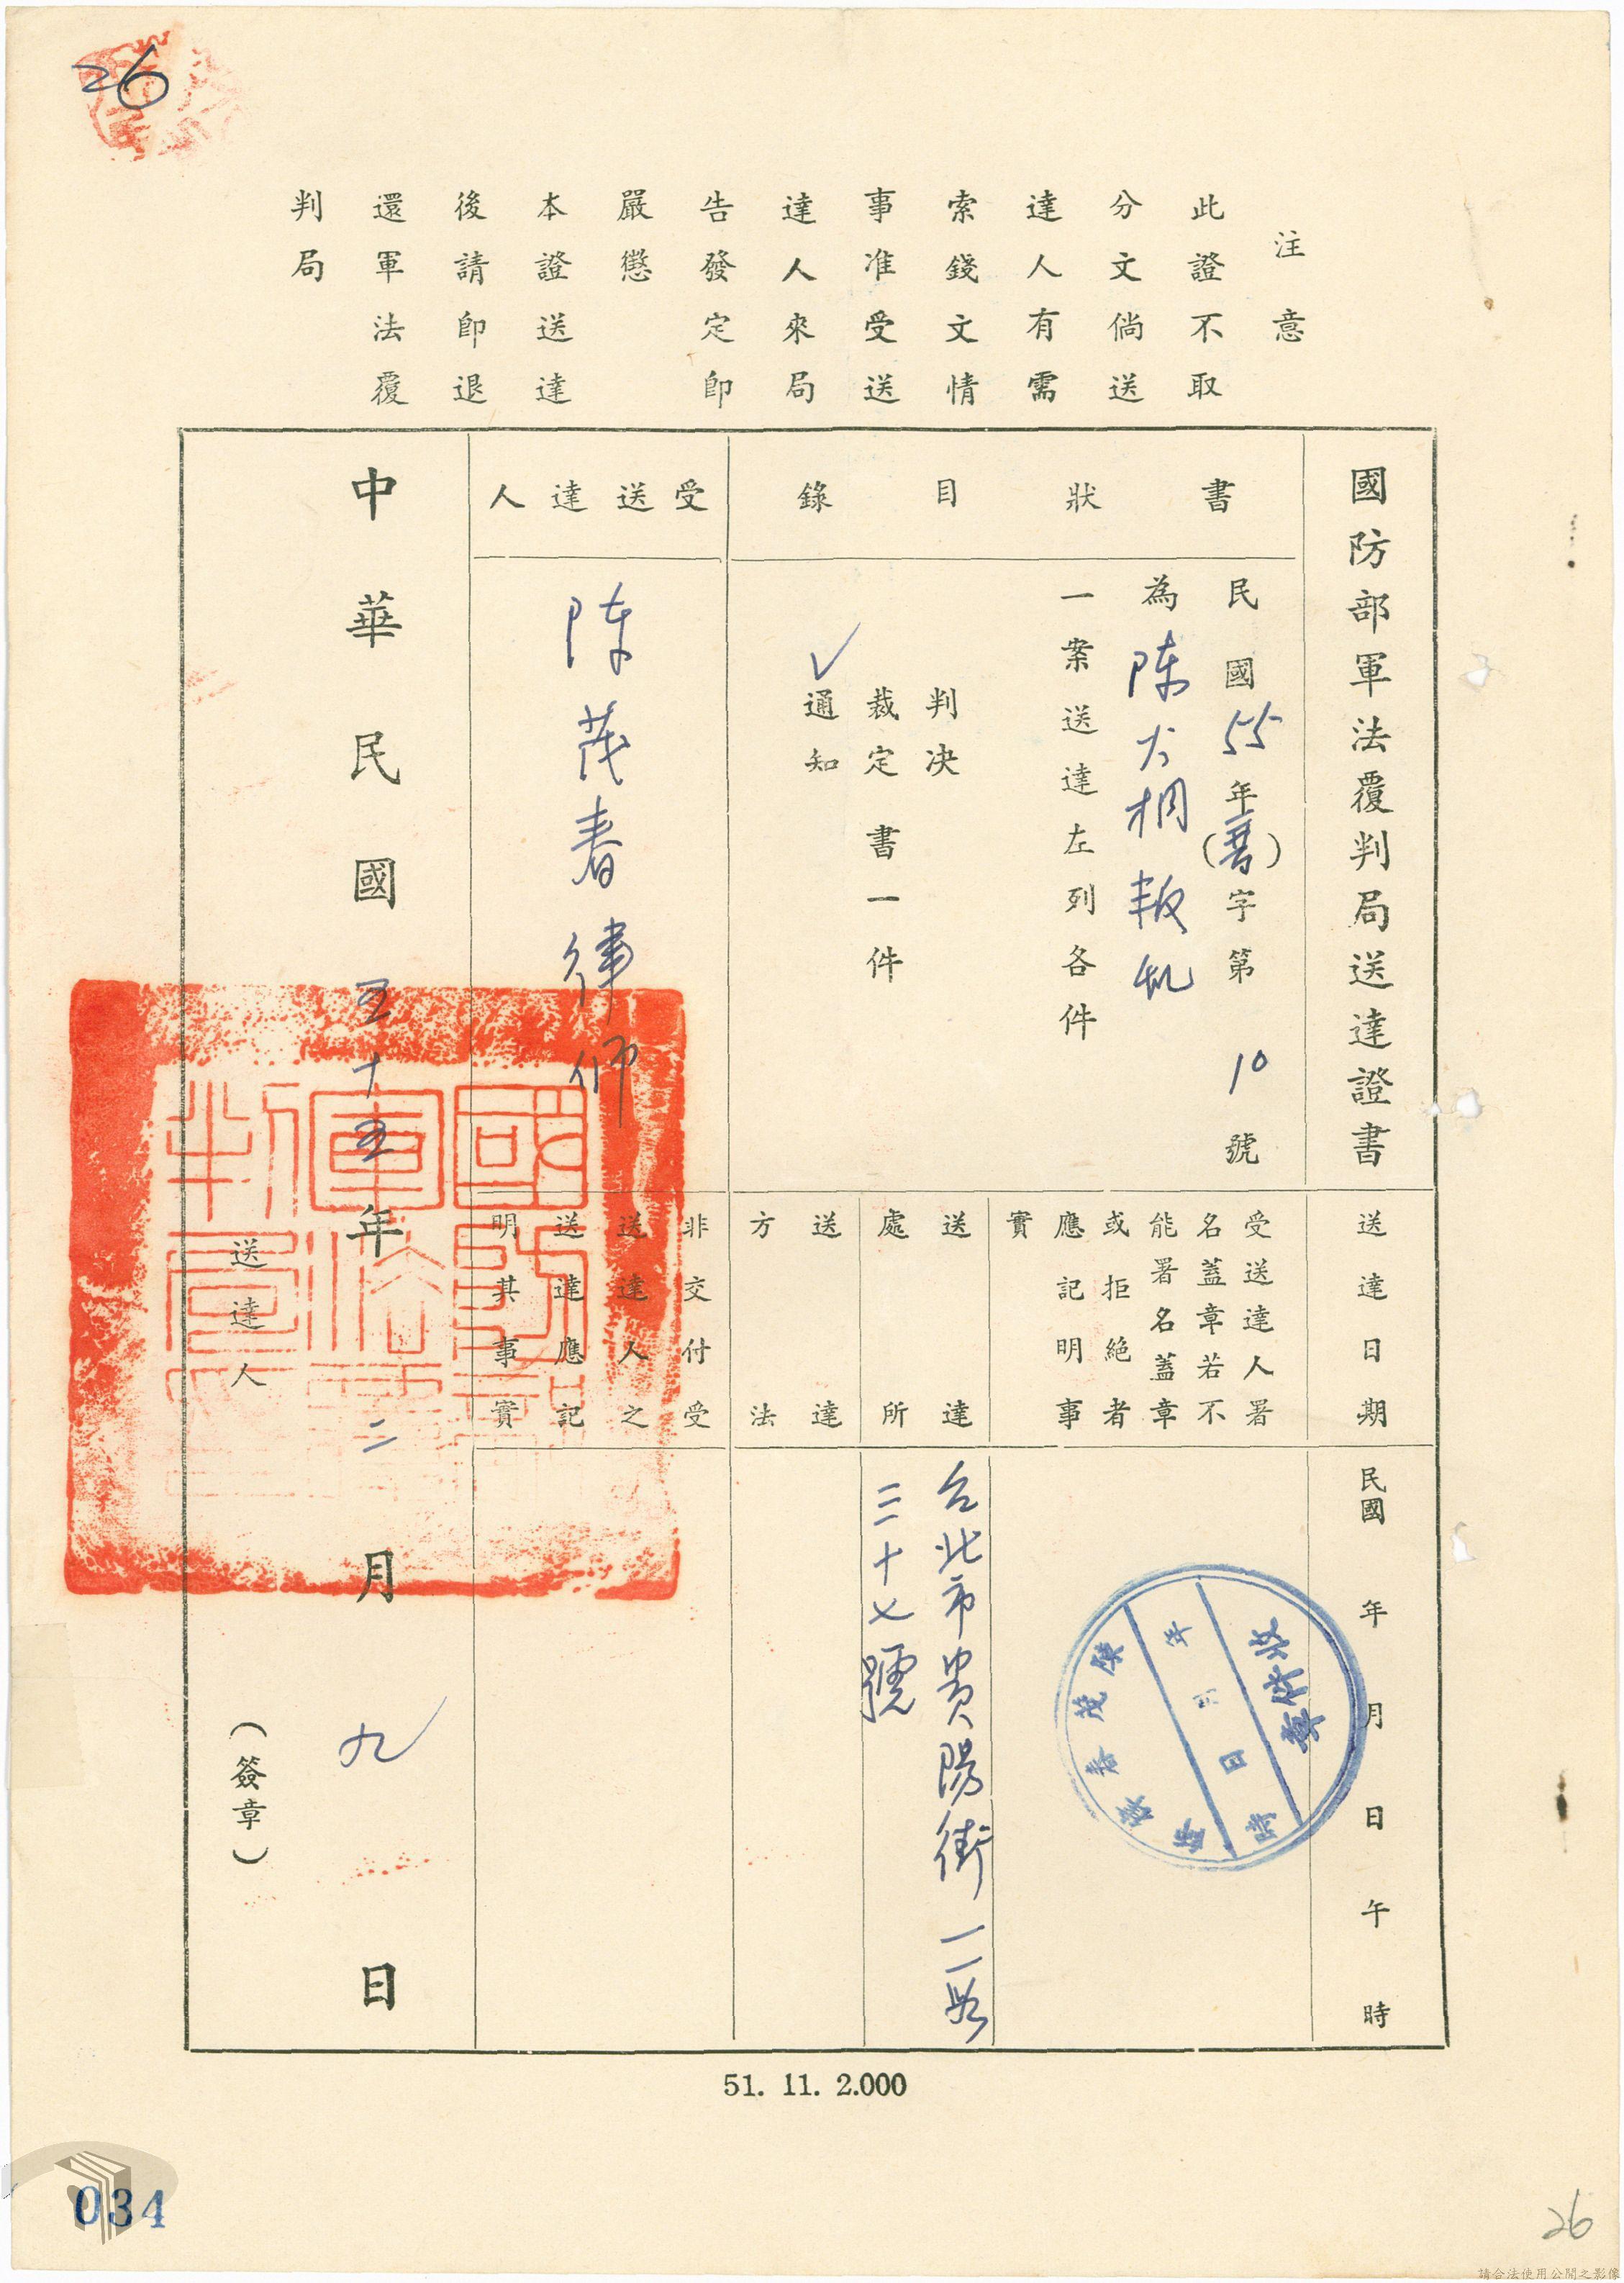 26
注意
此證不取
分文倘送
達人有需
索錢文情
事准受送
達人來局
告發定即
嚴懲
本證送達
後請即退
還軍法覆
判局
國防部軍法覆判局送達證書
書狀目錄
民國55年(普)字第10號
為陳大桐叛乱
一案送達左列各件
判決
裁定書一件
✓通知
受送達人
陳茂春律师
送達日期
民國 年 月 日 午 時
受送達人署
名蓋章若不
能署名蓋章
或拒絕者
應記明事
實
收件章
年月日時
陳茂春律師
送達
處所
台北市貴陽街一段
三十七號
送達
方法
非交付受
送達人之
送達應記
明其事實
中華民國五十五年二月九日
送達人
(簽章)
51. 11. 2.000
034
26
請合法使用公開之影像